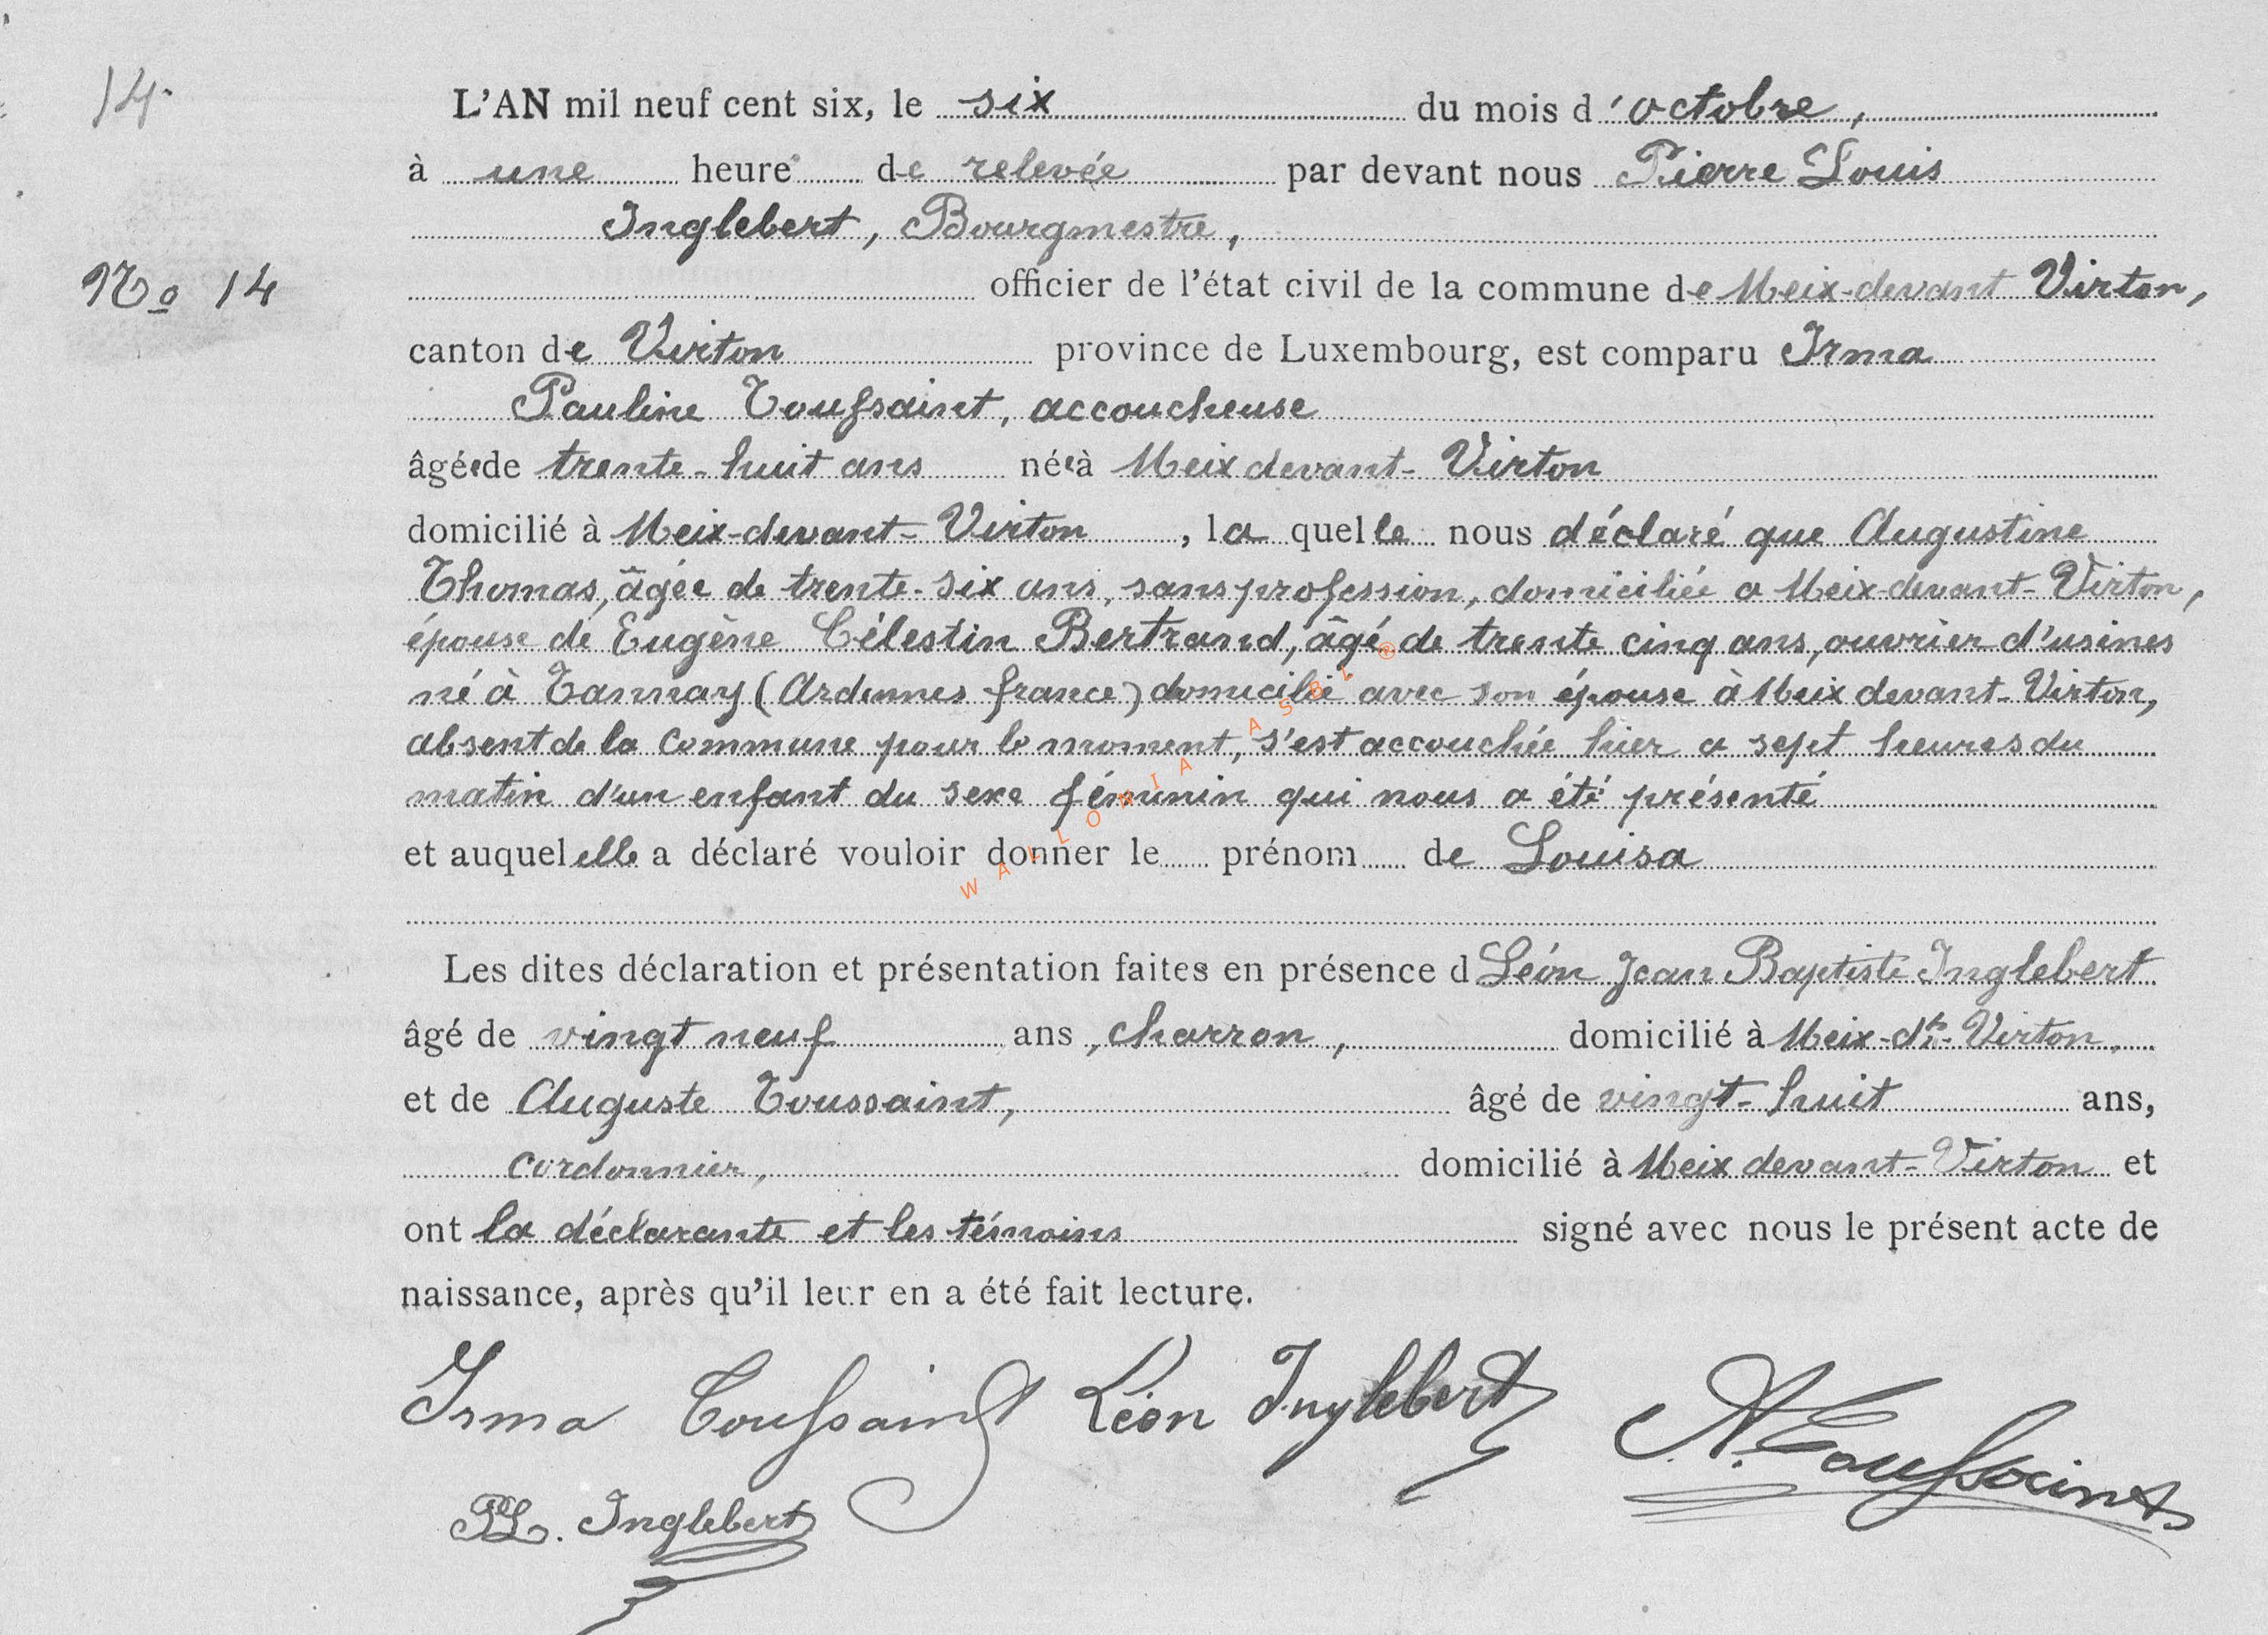 14.
L'AN mil neuf cent six, le six du mois d'octobre,
à une heure de relevée par devant nous Pierre Louis
Inglebert, Bourgmestre,
No 14
officier de l'état civil de la commune de Meix-devant Virton,
canton de Virton province de Luxembourg, est comparu Irma
Pauline Toussaint, accoucheuse
âgée de trente-huit ans née à Meix devant-Virton
domicilié à Meix-devant-Virton, laquelle nous déclaré que Augustine
Thomas, âgée de trente-six ans, sans profession, domiciliée a Meix-devant-Virton,
épouse de Eugène Célestin Bertrand, âgé de trente cinq ans, ouvrier d'usines
né à Tannay (Ardennes france) domicilié avec son épouse à Meix devant-Virton,
absent de la Commune pour le moment, s'est accouchée hier a sept heures du
matin d'un enfant du sexe féminin qui nous a été présenté
et auquel elle a déclaré vouloir donner le prénom de Louisa
WALLONIA ASBL®
Les dites déclaration et présentation faites en présence d Léon Jean Baptiste Inglebert
âgé de vingt neuf ans, charron, domicilié à Meix-dt-Virton,
et de Auguste Toussaint, âgé de vingt-huit ans,
cordonnier, domicilié à Meix devant-Virton et
ont la déclarante et les témoins signé avec nous le présent acte de
naissance, après qu'il leur en a été fait lecture.
Irma Toussaint Léon Inglebert A. Toussaint
PL. Inglebert